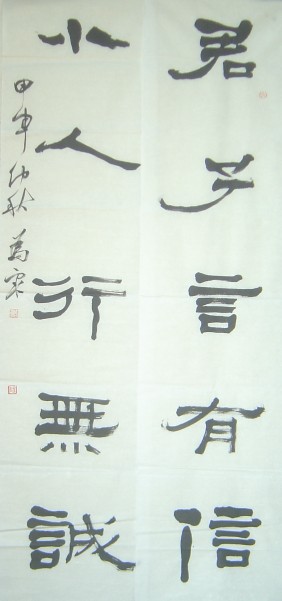 君子言有信
小人行無誠
甲申仲秋萬寀